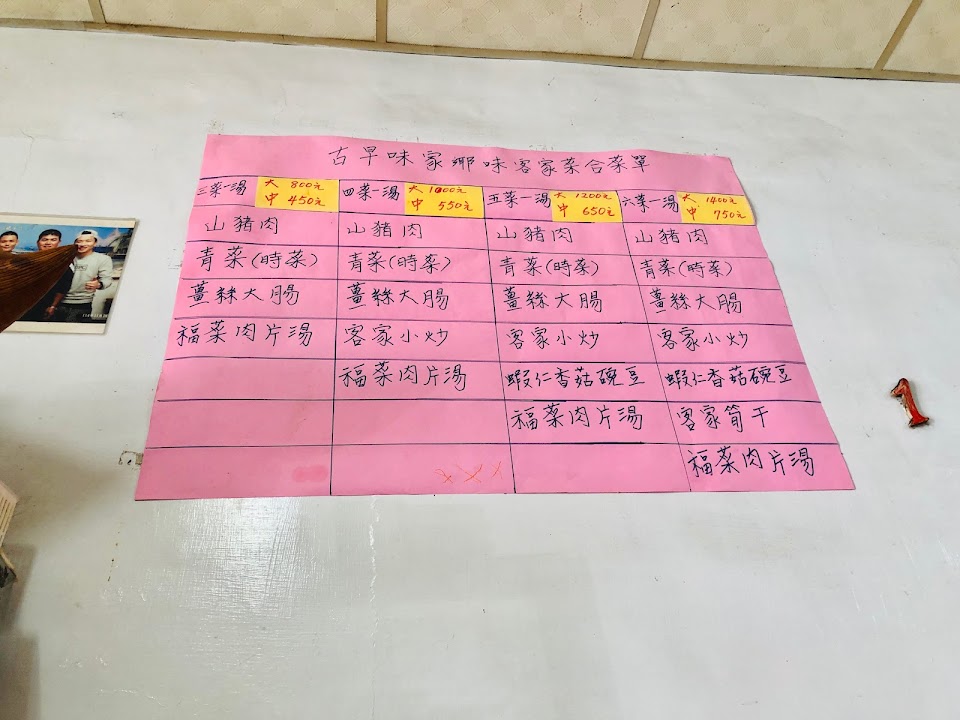 古早味家鄉味客家菜合菜單
三菜一湯 大 800元 中 450元
四菜一湯 大 1000元 中 550元
五菜一湯 大 1200元 中 650元
六菜一湯 大 1400元 中 750元
山豬肉 山豬肉 山豬肉 山豬肉
青菜(時菜) 青菜(時菜) 青菜(時菜) 青菜(時菜)
薑絲大腸 薑絲大腸 薑絲大腸 薑絲大腸
福菜肉片湯 客家小炒 客家小炒 客家小炒
福菜肉片湯 蝦仁香菇碗豆 蝦仁香菇碗豆
福菜肉片湯 客家筍干
福菜肉片湯
1